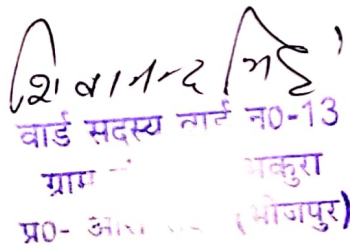 शिवानन्द सिंह
वार्ड सदस्य वार्ड न0-13
ग्राम
प्र0- (भोजपुर)